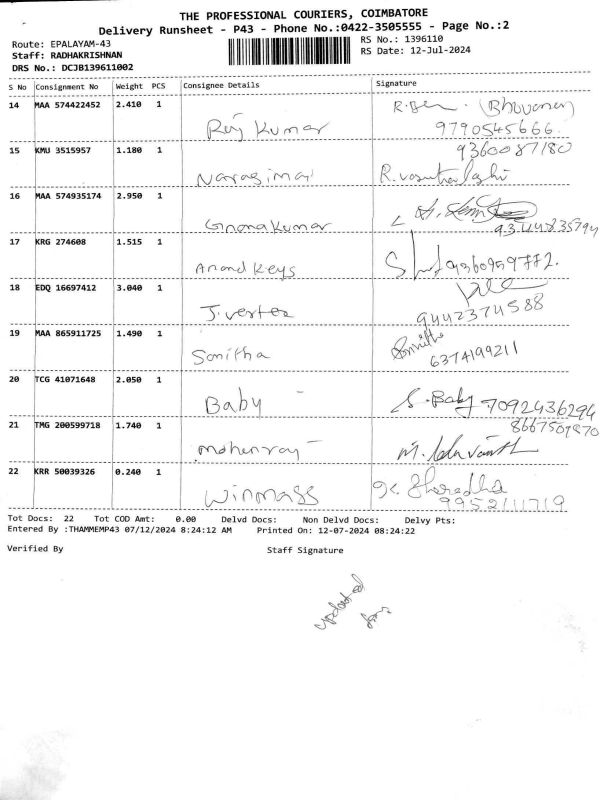 THE PROFESSIONAL COURIERS, COIMBATORE
Delivery Runsheet - P43 - Phone No.:0422-3505555 - Page No.:2
Route: EPALAYAM-43
RS No.: 1396110
Staff: RADHAKRISHNAN
RS Date: 12-Jul-2024
DRS No.: DCJB139611002
S No Consignment No Weight PCS Consignee Details Signature
14 MAA 574422452 2.410 1
Raj Kumar
(Bhuvaner)
9790545666
15 KMU 3515957 1.180 1
9360087180
Narasimai
R.
16 MAA 574935174 2.950 1
GnanaKumar
17 KRG 274608 1.515 1
Anand Keys
9360959772.
18 EDQ 16697412 3.040 1
J. vertex
9442374588
19 MAA 865911725 1.490 1
Sonitha
6374199211
20 TCG 41071648 2.050 1
Baby
S. Baby 7092436294
21 TMG 200599718 1.740 1
8667501870
mohenraj
22 KRR 50039326 0.240 1
Winmass
9952111719
Tot Docs: 22 Tot COD Amt: 0.00 Delvd Docs: Non Delvd Docs: Delvy Pts:
Entered By :THAMMEMP43 07/12/2024 8:24:12 AM Printed On: 12-07-2024 08:24:22
Verified By Staff Signature
updated